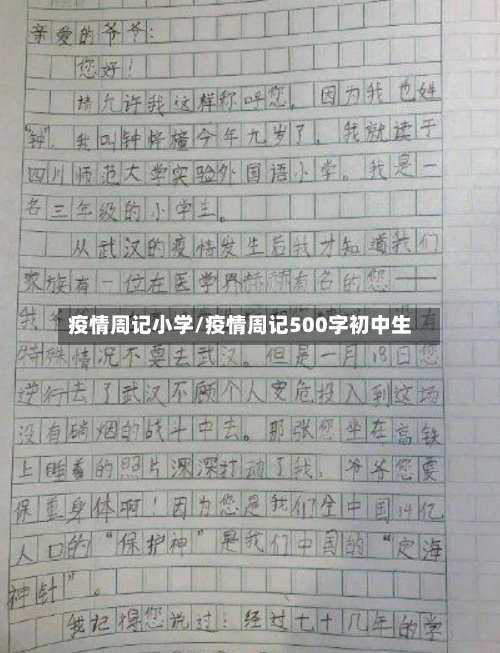 亲爱的爷爷：
您好！
请允许我这样称呼您，因为我也姓
“钟”。我叫钟梓橦今年九岁了，我就读于
四川师范大学实验外国语小学。我是一
名三年级的小学生。
从武汉的疫情发生后我才知道我们
家族有一位在医学界赫赫有名的您——
疫情周记小学/疫情周记500字初中生
特殊情况不要去武汉。但是一月18日您
逆行去了武汉不顾个人安危投入到这场
没有硝烟的战斗中去。那张您坐在高铁
上睡着的照片深深打动了我，爷爷您要
保重身体啊！因为您是我们全中国14亿
人口的“保护神”是我们中国的“定海
神针”。
我记得您说过！经过七十几年的学